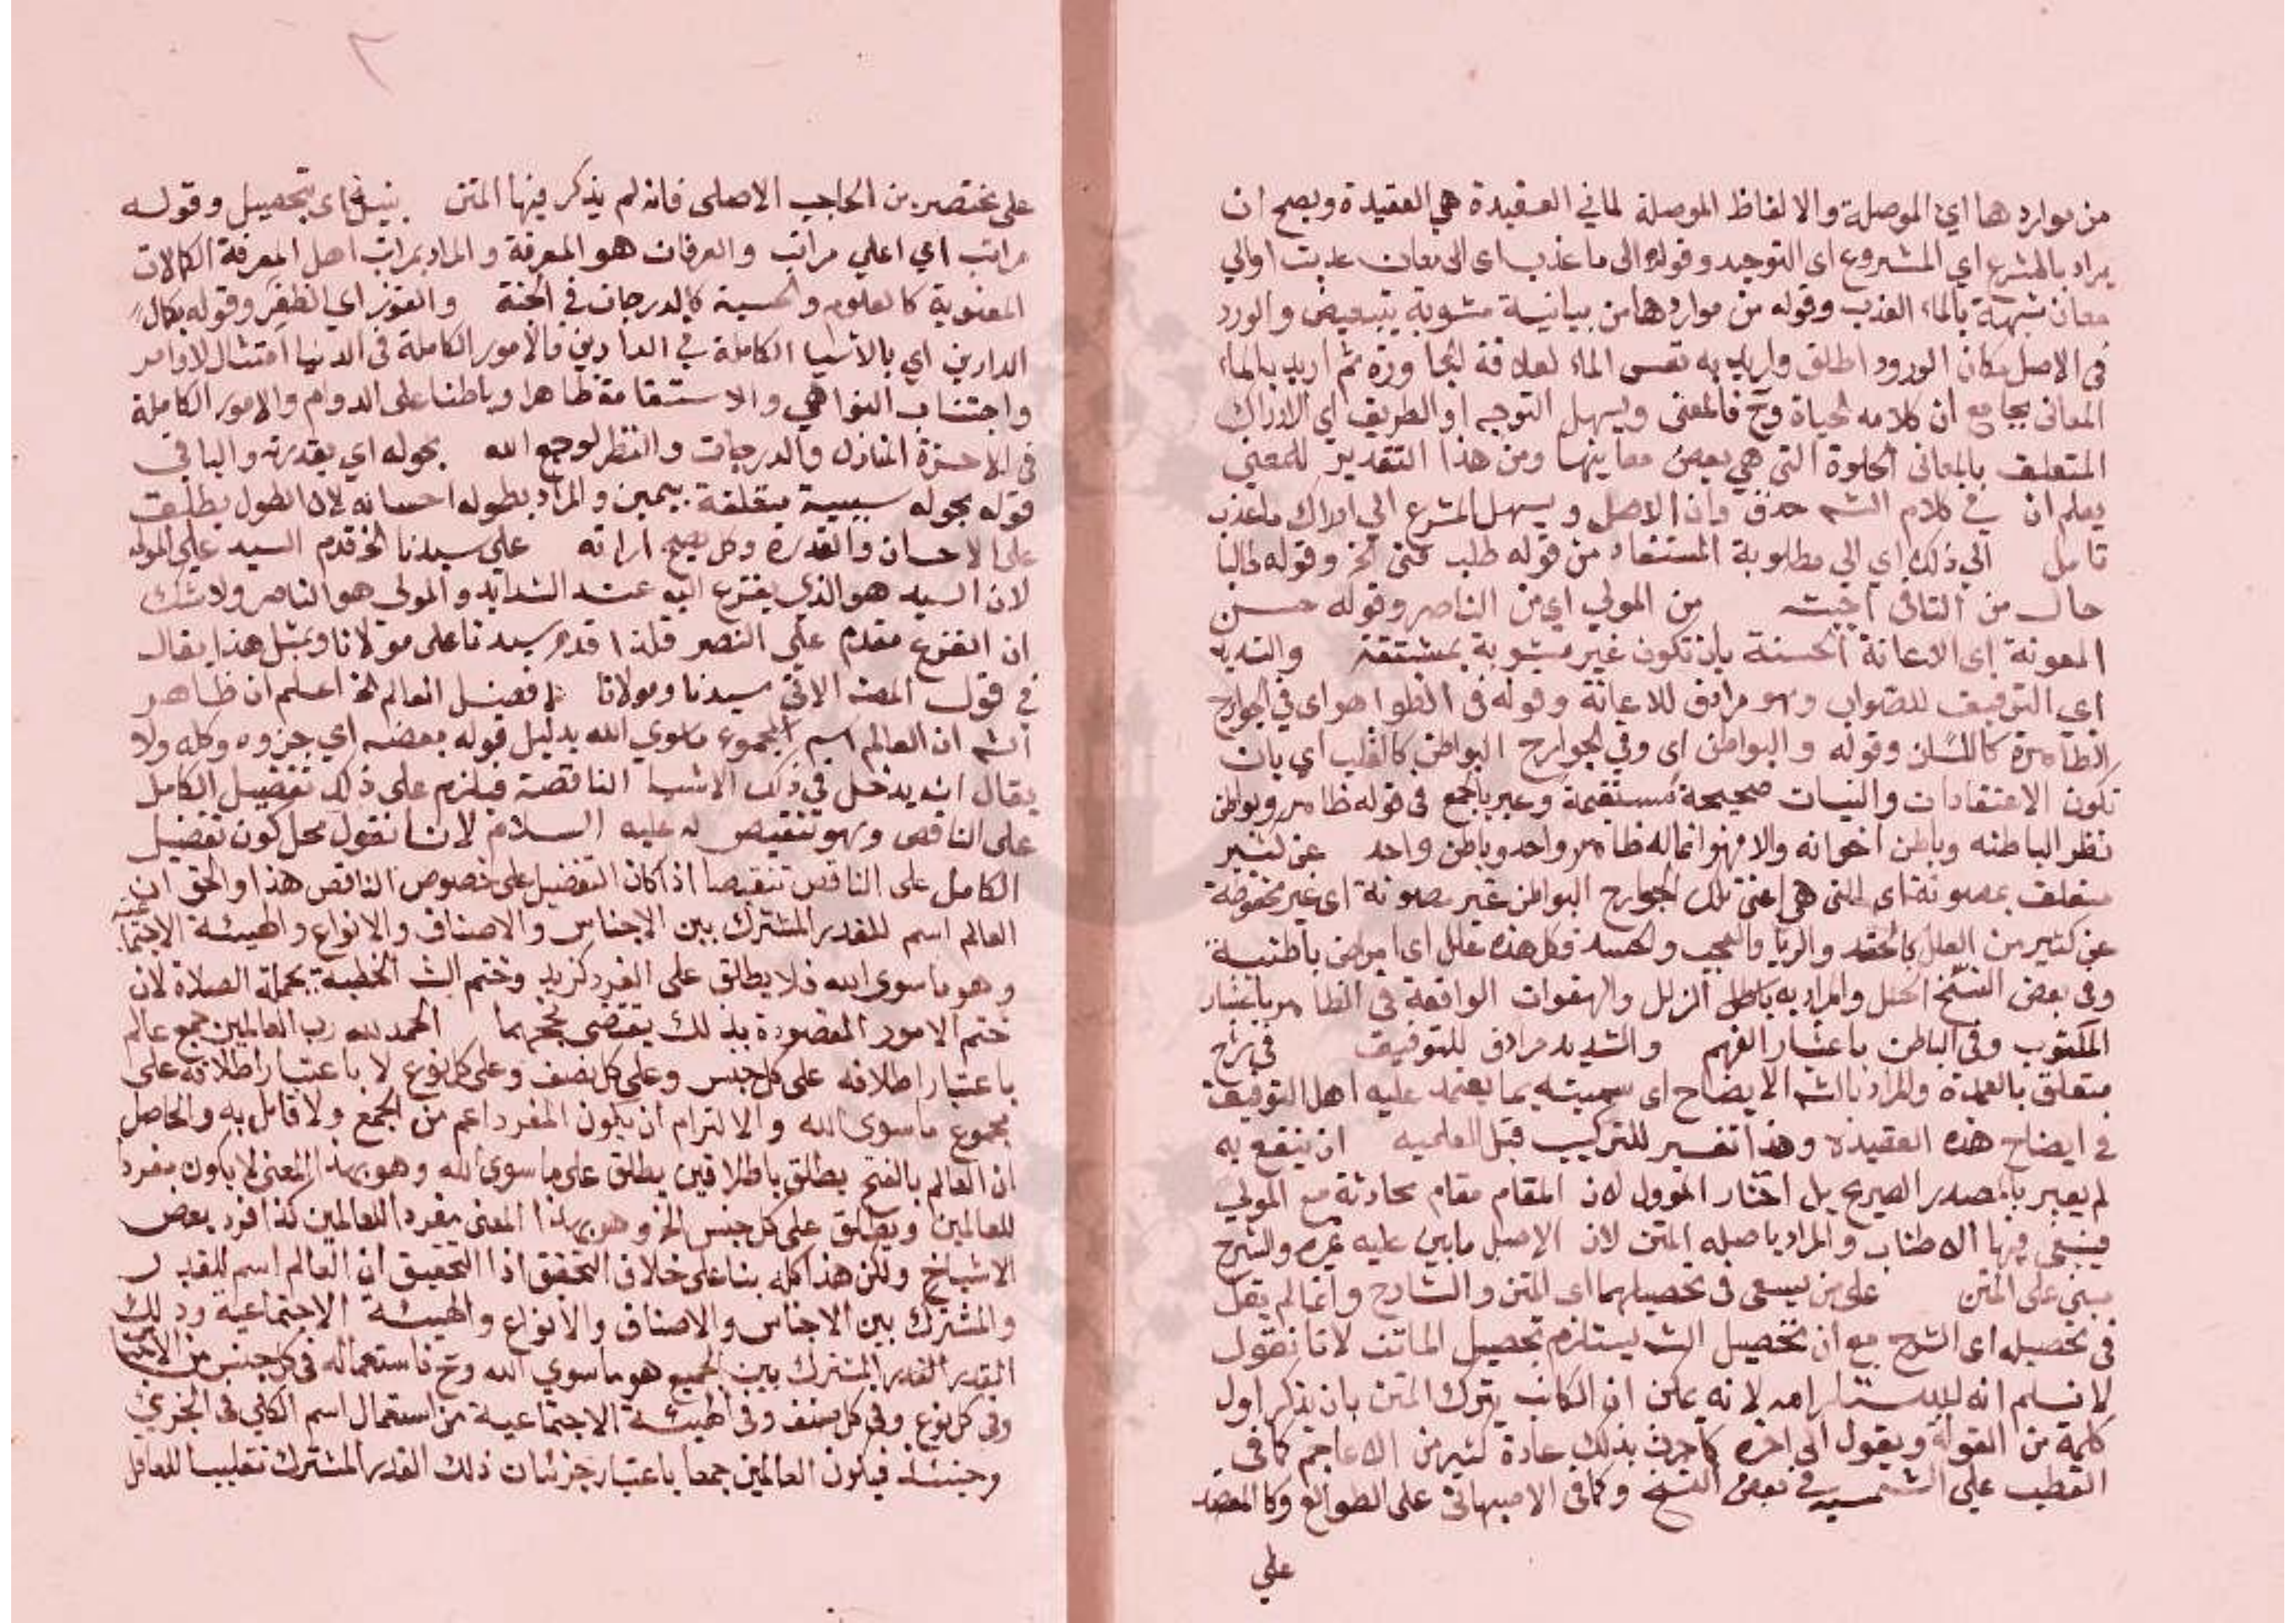 من مواردها اي الموصلة والالفاظ الموصلة لما في العقيدة هي العقيدة ويصح ان
يراد بالمشرع اي المشروع اى التوحيد وقوله الى ما عذب اى الى معان عذبت اوالي
معان شبهة بالماء العذب وقوله من مواردها من بيانية مشوبة بتبعيض والورد
فى الاصل مكان الورود اطلق واريد به نفس الماء لعلاقة المجاورة ثم اريد بالماء
المعانى بجامع ان كلا به الحياة وح فالمعنى ويسهل التوجه او الطريق اي الادراك
المتعلق بالمعانى الحلوة التى هي بعض معاينها ومن هذا التقدير للمعنى
يعلم ان في كلام الشه حذف وان الاصل ويسهل المشرع الي ادراك ما عذب
تامل الى ذلك اي الي مطلوبة المستفاد من قوله طلب منى الخ وقوله طالبا
حال من التافى اجبته من المولي اي من الناصر وقوله حسن
المعونة اى الاعانة الحسنة بان تكون غير مشوبة بمشقة والتسديد
اى التوفيق للصواب وهو مرادف للاعانة وقوله فى الظواهر اى في الجوارح
الظاهرة كاللسان وقوله والبواطن اى وفي الجوارح البواطن كالقلب اي بان
تكون الاعتقادات والنيات صحيحة مستقيمة وعبر بالجمع فى قوله ظاهر وبواطن
نظر الباطنه وباطن اخوانه والا فهو انما له ظاهر واحد وباطن واحد عن كثير
متعلق بمصونة اى التى هي اعنى تلك الجوارح البواطن غير مصونة اى غير محفوظة
عن كثير من العلل كالحقد والريا والعجب والحسد وكل هذه علل اى امراض باطنية
وفى بعض النسخ الخلل والمراد به باطل الزلل والهفوات الواقعة فى الظاهر باعتبار
المكتوب وفى الباطن باعتبار الفهم والتسديد مرادف للتوفيق فى شرح
متعلق بالعمدة والمراد بالشه الايضاح اى سميته بما يعتمد عليه اهل التوفيق
في ايضاح هذه العقيدة وهذا تفسير للتركيب قبل العلميه ان ينفع به
لم يعبر بالمصدر الصريح بل اختار المؤول لان المقام مقام محادثة مع المولي
فينبغى فيها الاطناب والمراد باصله المتن لان الاصل ما بنى عليه غيره والشرح
مبنى على المتن على من يسعى فى تحصيلهما اى المتن والشارح وانما لم يقل
فى تحصيله اى الشرح مع ان تحصيل الشه يستلزم تحصيل الماتن لانا نقول
لا نسلم انه يستلزامه لانه يمكن ان الكاتب يترك المتن بان يذكر اول
كلمة من القولة ويقول الى اخره كما جرت بذلك عادة كثير من الاعاجم كما في
القطب علي الشمسيه في بعض النسخ وكما فى الاصبهانى على الطوالع وكالعضد
علي
على مختصر بن الحاجب الاصلى فانه لم يذكر فيها المتن بنيل اى بتحصيل وقوله
مراتب اي اعلي مراتب والعرفان هو المعرفة والمراد بمراتب اهل المعرفة الكمالات
المعنوية كالعلوم والحسية كالدرجات في الجنة والفوز اي الظفر وقوله بكمال
الدارين اي بالاشيا الكاملة في الدارين فالامور الكاملة فى الدنيا امتثال لاوامر
واجتناب النواهي والاستقامة ظاهرا وباطنا على الدوام والامور الكاملة
فى الاخرة المنازل والدرجات والنظر لوجه الله بحوله اي بقدرته والبا في
قوله بحوله سببية متعلقة بيمين والمراد بطوله احسانه لان الطول يطلق
على الاحسان والقدرة وكل يصح ارادته علي سيدنا الخ قدم السيد علي المولى
لان السيد هو الذي يفزع اليه عند الشدايد والمولى هو الناصر ولا شك
ان الفزع مقدم علي النصر فلذا قدم سيدنا على مولانا وبمثل هذا يقال
في قول المصنف الاتى سيدنا ومولانا افضل العالم الخ اعلم ان ظاهر
الشه ان العالم اسم لمجموع ما سوي الله بدليل قوله بعضه اي جزوه وكله ولا
يقال انه يدخل في ذلك الاشيا الناقصة فيلزم على ذلك تفضيل الكامل
على الناقص وهو تنقيص له عليه السلام لانا نقول محل كون تفضيل
الكامل على الناقص تنقيصا اذا كان التفضيل على خصوص الناقص هذا والحق ان
العالم اسم للقدر المشترك بين الاجناس والاصناف والانواع والهيئة الاجتماعية
وهو ما سوى الله فلا يطلق على الفرد كزيد وختم الشه الخطبة بجملة الصلاة لان
ختم الامور المقصورة بذلك يقتضى نجحها الحمد لله رب العالمين جمع عالم
باعتبار اطلاقه على كل جنس وعلى كل صنف وعلى كل نوع لا باعتبار اطلاقه على
مجموع ما سوى الله والا لزام ان يكون المفرد اعم من الجمع ولا قائل به والحاصل
ان العالم بالفتح يطلق باطلاقين يطلق على ما سوى الله وهو بهذا المعنى لا يكون مفردا
للعالمين ويطلق على كل جنس الخ وهو بهذا المعنى مفردا للعالمين كذا قرر بعض
الاشياخ ولكن هذا كله بنا على خلاف التحقق اذ التحقيق ان العالم اسم للقدر
والمشترك بين الاجناس والاصناف والانواع والهيئة الاجتماعية وذلك
القدر القدر المشترك بين الجميع هو ما سوي الله وح فاستعماله فى كل جنس من الاجناس
وفى كل نوع وفى كل صنف وفى الهيئة الاجتماعية من استعمال اسم الكلي فى الجزئي
وحينئذ فيكون العالمين جمعا باعتبار جزئيات ذلك القدر المشترك تغليبا للعاقل